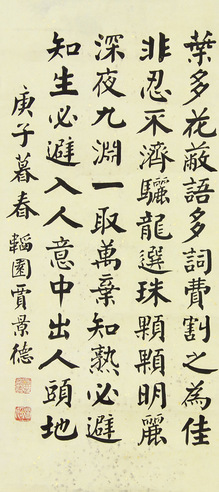 葉多花蔽語多詞費割之為佳
非忍不濟驪龍選珠顆顆明麗
深夜九淵一取萬棄知熟必避
知生必避入人意中出人頭地
庚子暮春 韜園賈景德